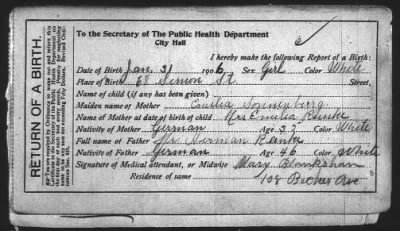 RETURN OF A BIRTH.
To the Secretary of The Public Health Department
City Hall
I hereby make the following Report of a Birth:
Date of Birth Jan. 31 1906 Sex Girl Color White
Place of Birth 68 Simon St Street,
Name of child (if any has been given)
Maiden name of Mother Emilia Sonnenberg
Name of Mother at date of birth of child Mrs Emilia
Nativity of Mother German Age 33 Color White
Full name of Father Herman Ranke
Nativity of Father German Age 46 Color White
Signature of Medical attendant, or Midwife Mary
Residence of same 108 Ave